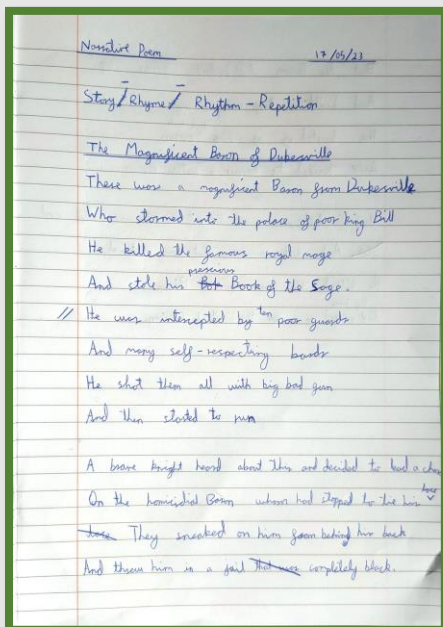 Narrative Poem 17/05/23
Story / Rhyme / Rhythm - Repetition
The Magnificent Baron of Dukesville
There was a magnificent Baron from Dukesville
Who stormed into the palace of poor king Bill
He killed the famous royal mage
And stole his precious Book of the Sage.
// He was intercepted by ten poor guards
And many self-respecting bards
He shot them all with big bad gun
And then started to run
A brave knight heard about this and decided to lead a chase
On the homicidal Baron whom had stopped to tie his lace
They sneaked on him from behind his back
And threw him in a jail that was completely black.